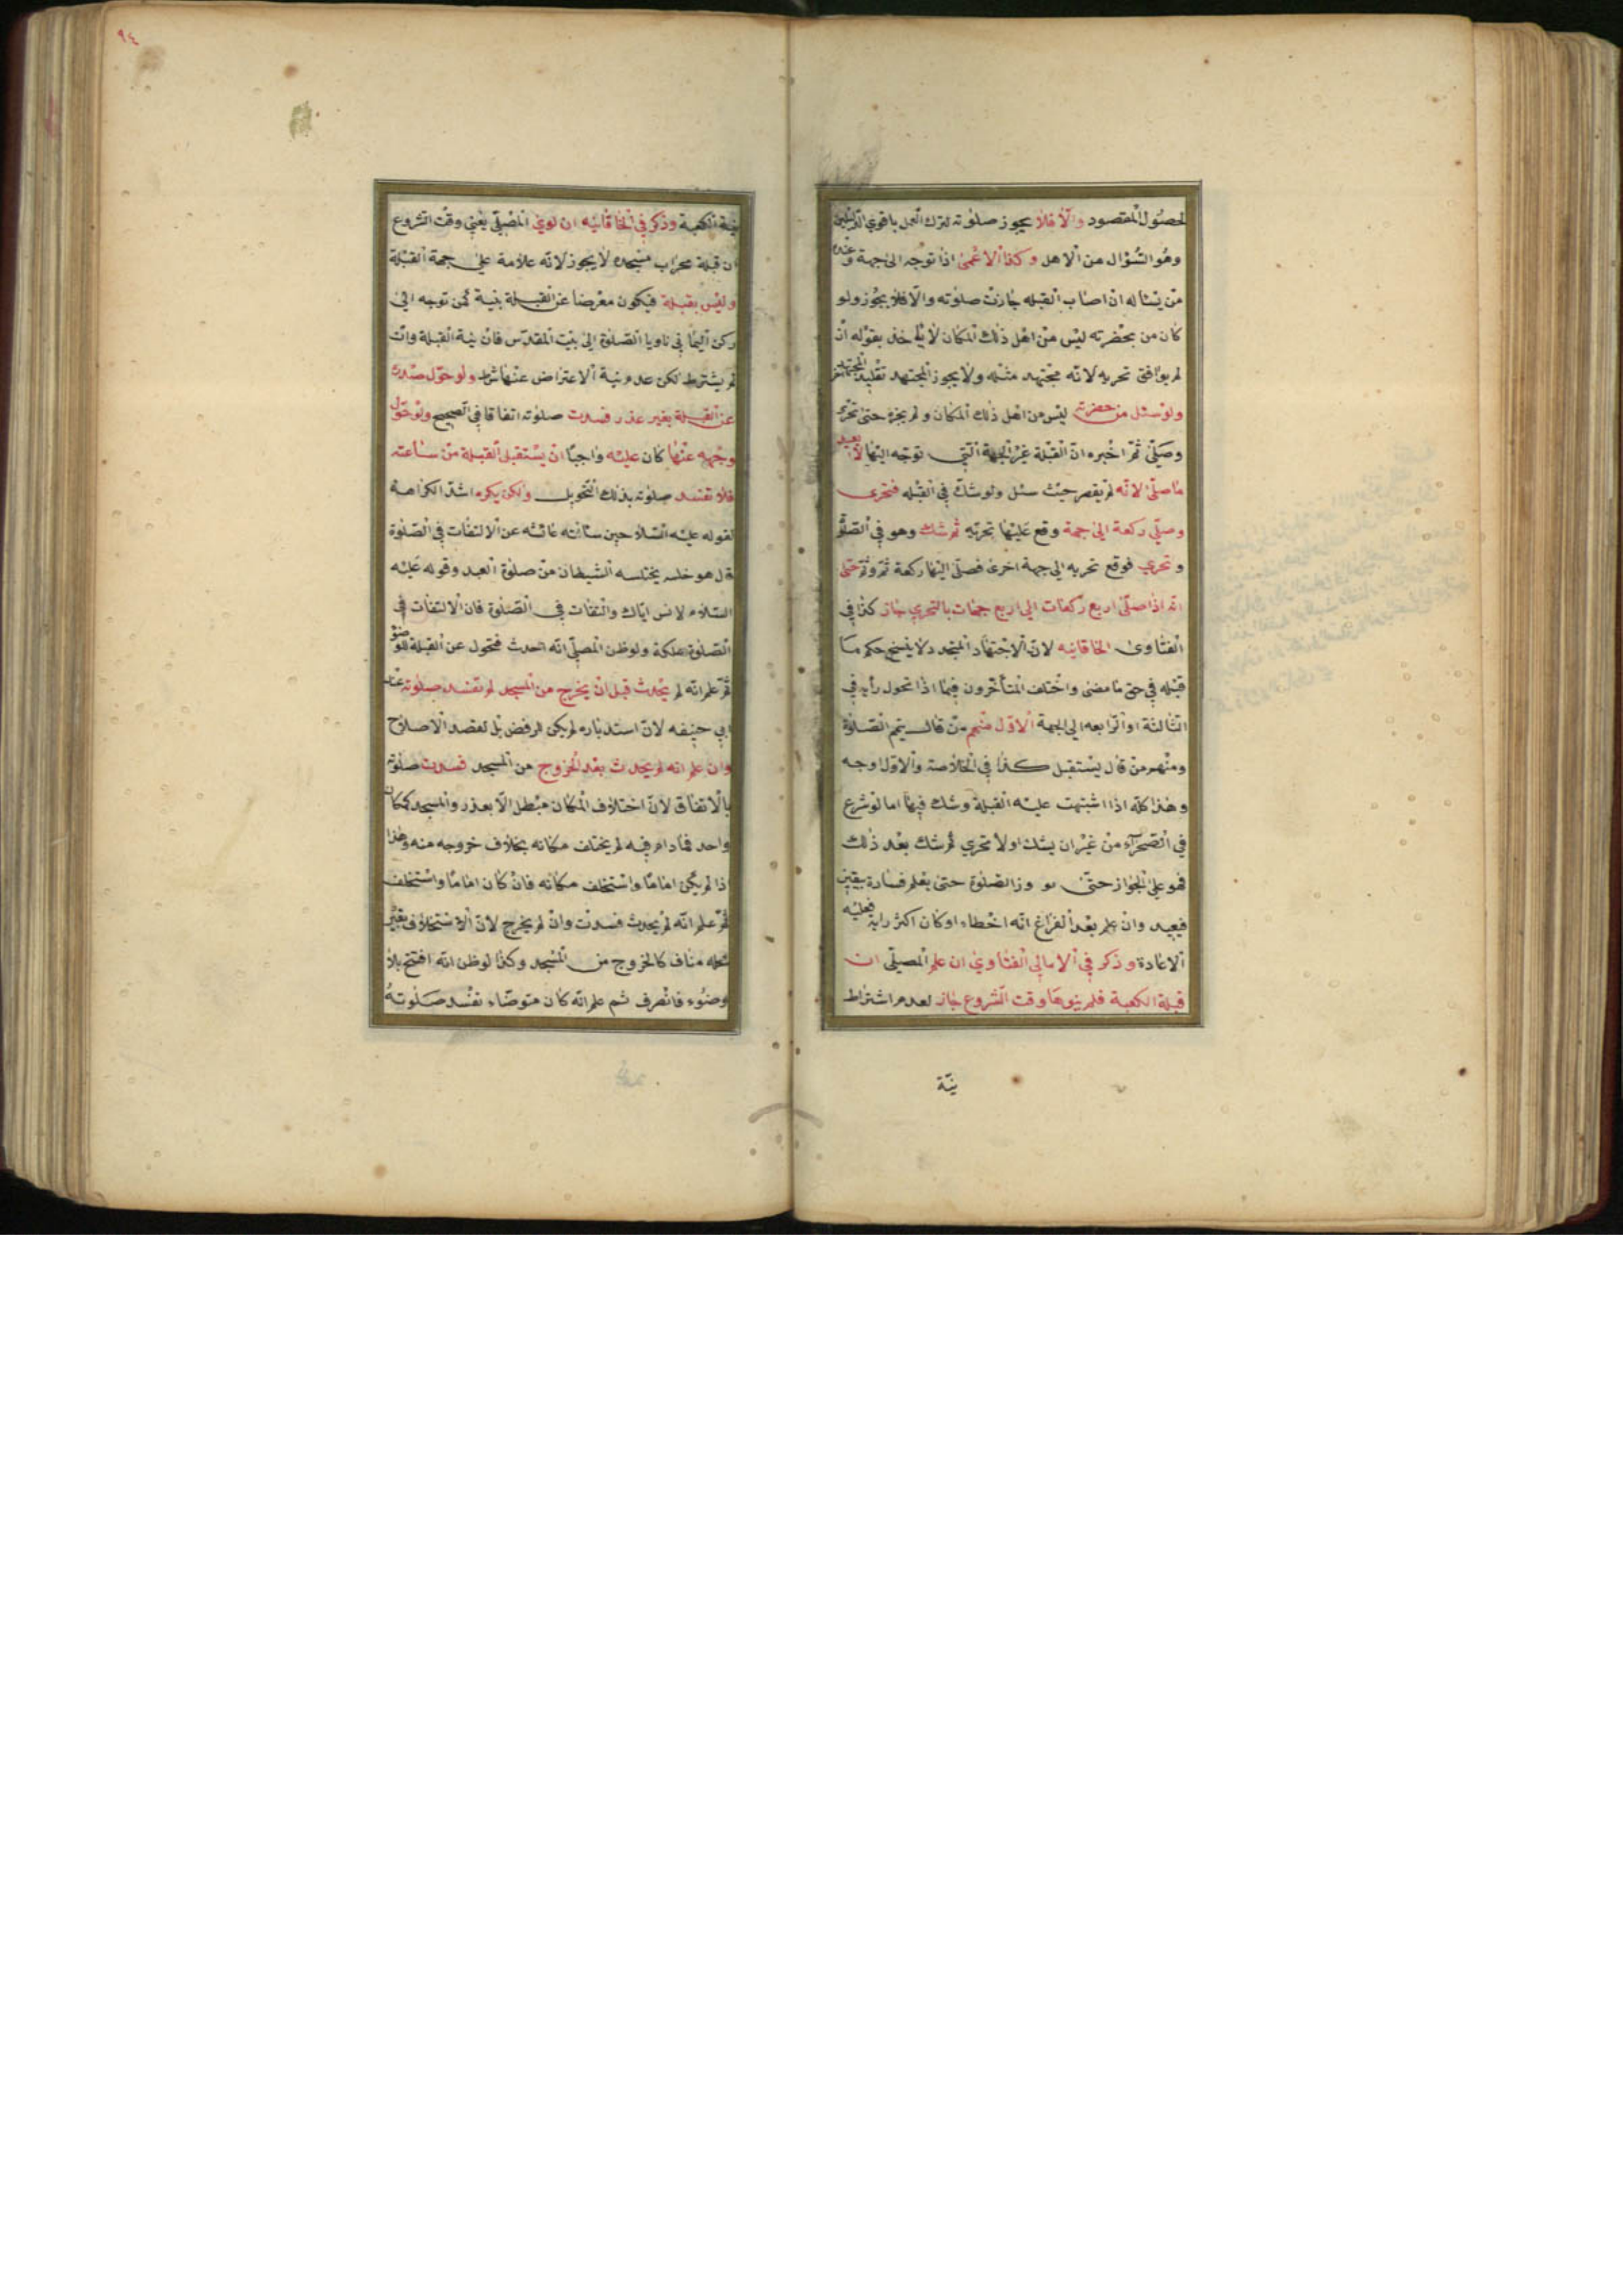 لحصول المقصود والا فلا يجوز صلوته لترك العمل باقوي الدليلين
وهو السؤال من الاهل وكذا الاعمى اذا توجه الى جهة وعنده
من يسأله ان اصاب القبله جازت صلوته والا فلا يجوز ولو
كان من بحضرته ليس من اهل ذلك المكان لا ياخذ بقوله ان
لم يوافق تحريه لانه مجتهد مثله ولا يجوز المجتهد تقليد المجتهد
ولو سئل من حضرته ليس من اهل ذلك المكان ولم يخبره حتى تحرى
وصلى ثم اخبره ان القبلة غير الجهة التي توجه اليها لا يعيد
ما صلى لانه لم يقصر حيث سئل ولو شك في القبله فتحرى
وصلى ركعة الى جهة وقع عليها تحريه ثم شك وهو في الصلوة
وتحري فوقع تحريه الى جهة اخرى فصلى اليها ركعة ثم وثم حتى
انه اذا صلى اربع ركعات الى اربع جهات بالتحري جاز كذا في
الفتاوى الخاقانيه لان الاجتهاد المتجدد لا ينسخ حكم ما
قبله في حق ما مضى واختلف المتأخرون فيما اذا تحول رأيه في
الثالثة او الرابعه الى الجهة الاولى منهم من قال يتم الصلوة
ومنهم من قال يستقبل كذا في الخلاصة والاول اوجه
وهذا كله اذا اشتبهت عليه القبلة وشك فيها اما لو شرع
في الصحرآء من غير ان يشك اولا تحري ثم شك بعد ذلك
فهو على الجواز حتى وز الصلوة حتى يعلم فساده بيقين
فيعيد وان علم بعد الفراغ انه اخطاء او كان اكثر رايه فعليه
الاعادة وذكر في الامالي الفتاوي ان علم المصلي ان
قبلة الكعبة فلم ينوها وقت الشروع جاز لعدم اشتراط
نية
٩٤
نية الكعبة وذكر في الخاقانيه ان نوي المصلي يعني وقت الشروع
ان قبلة محراب مسجده لا يجوز لانه علامة على جهة القبلة
وليس بقبلة فيكون معرضا عن القبلة بنية كمن توجه الى
ركن اليماني ناويا الصلوة الى بيت المقدس فان نية القبلة وان
لم يشترط لكن عدم نية الاعتراض عنها شرط ولو حول صدره
عن القبلة بغير عذر فسدت صلوته اتفاقا في الصحيح ولو حول
وجهه عنها كان عليه واجبا ان يستقبل القبلة من ساعته
فلا تفسد صلوته بذلك التحويل ولكن يكره اشد الكراهة
لقوله عليه السلام حين سألته عائشه عن الالتفات في الصلوة
قال هو خلسه يختلسه الشيطان من صلوة العبد وقوله عليه
السلام لانس اياك والتفات في الصلوة فان الالتفات في
الصلوة هلكة ولو ظن المصلي انه احدث فتحول عن القبلة للوضو
ثم علم انه لم يحدث قبل ان يخرج من المسجد لم تفسد صلوته عند
ابي حنيفه لان استدباره لم يكن لرفض بل لقصد الاصلاح
وان علم انه لم يحدث بعد الخروج من المسجد فسدت صلوته
بالاتفاق لان اختلاف المكان مبطل الا بعذر والمسجد كمكان
واحد فما دام فيه لم يختلف مكانه بخلاف خروجه منه وهذا
اذا لم يكن اماما واستخلف مكانه فان كان اماما واستخلف
ثم علم انه لم يحدث فسدت وان لم يخرج لان الاستخلاف بغير
محله مناف كالخروج من المسجد وكذا لو ظن انه افتتح بلا
وضوء فانصرف ثم علم انه كان متوضاء تفسد صلوته